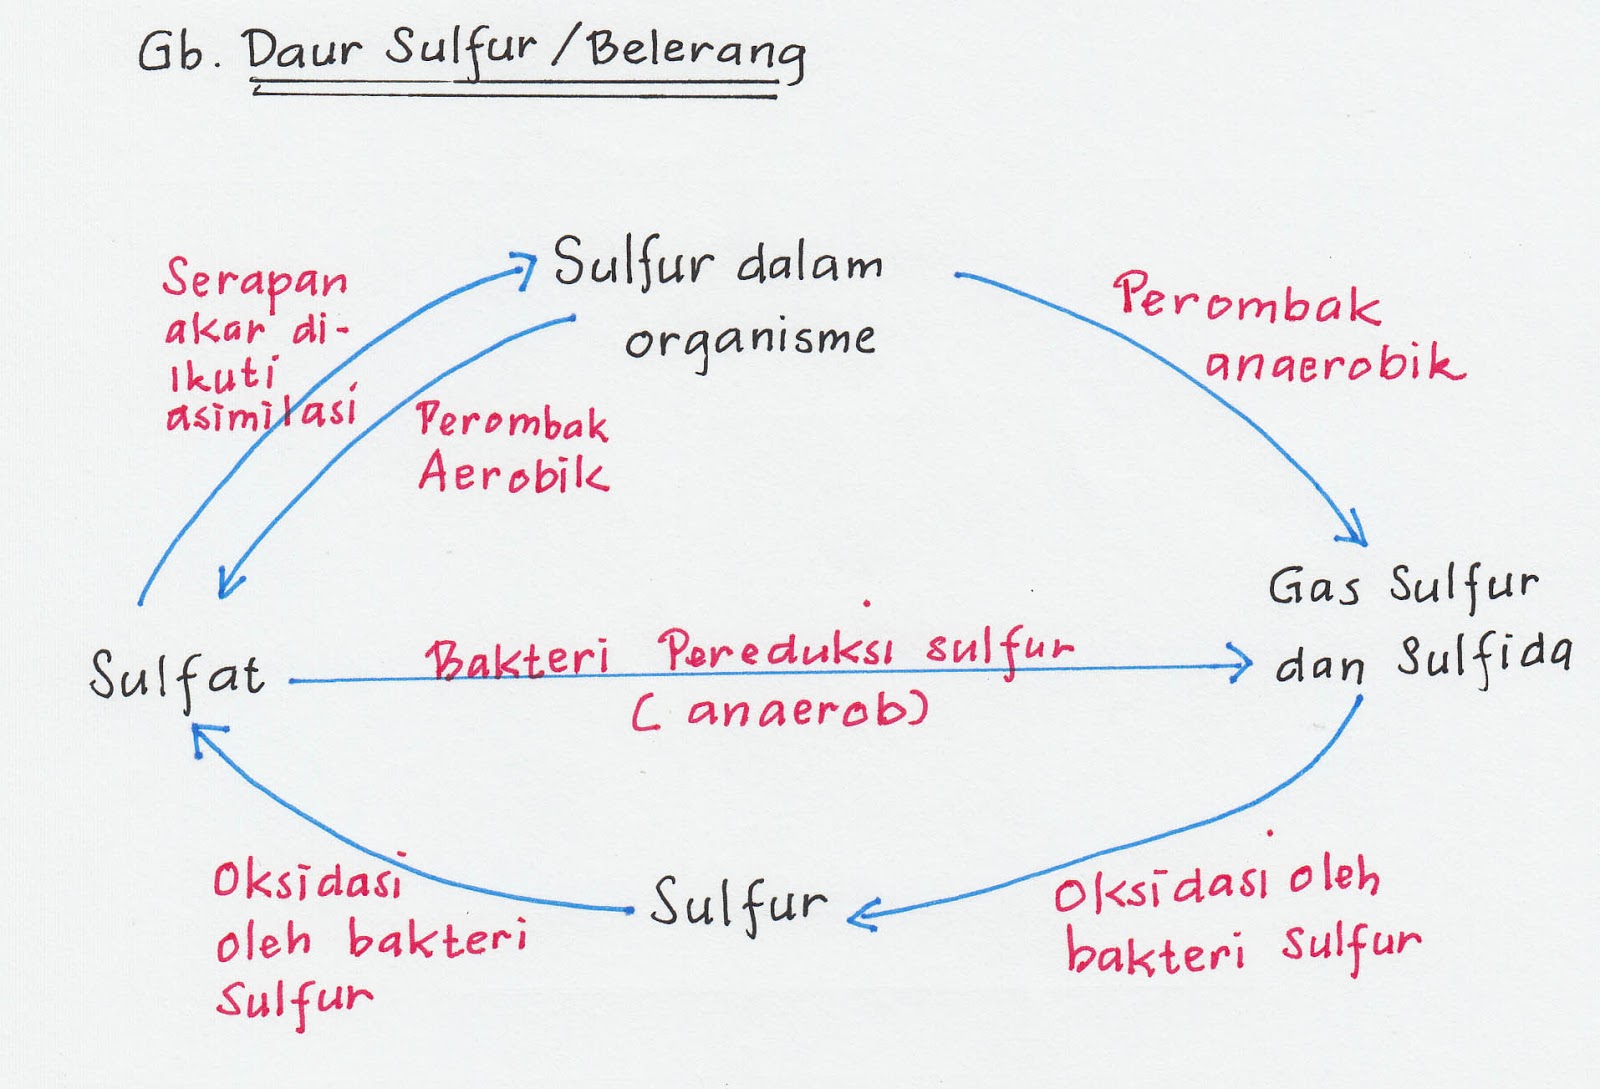 Gb. Daur Sulfur/Belerang
Serapan
akar di-
ikuti
asimilasi
Sulfur dalam
organisme
Perombak
anaerobik
Perombak
Aerobik
Gas Sulfur
dan Sulfida
Sulfat
Bakteri Pereduksi sulfur
(anaerob)
Oksidasi
oleh bakteri
Sulfur
Sulfur
Oksidasi oleh
bakteri Sulfur